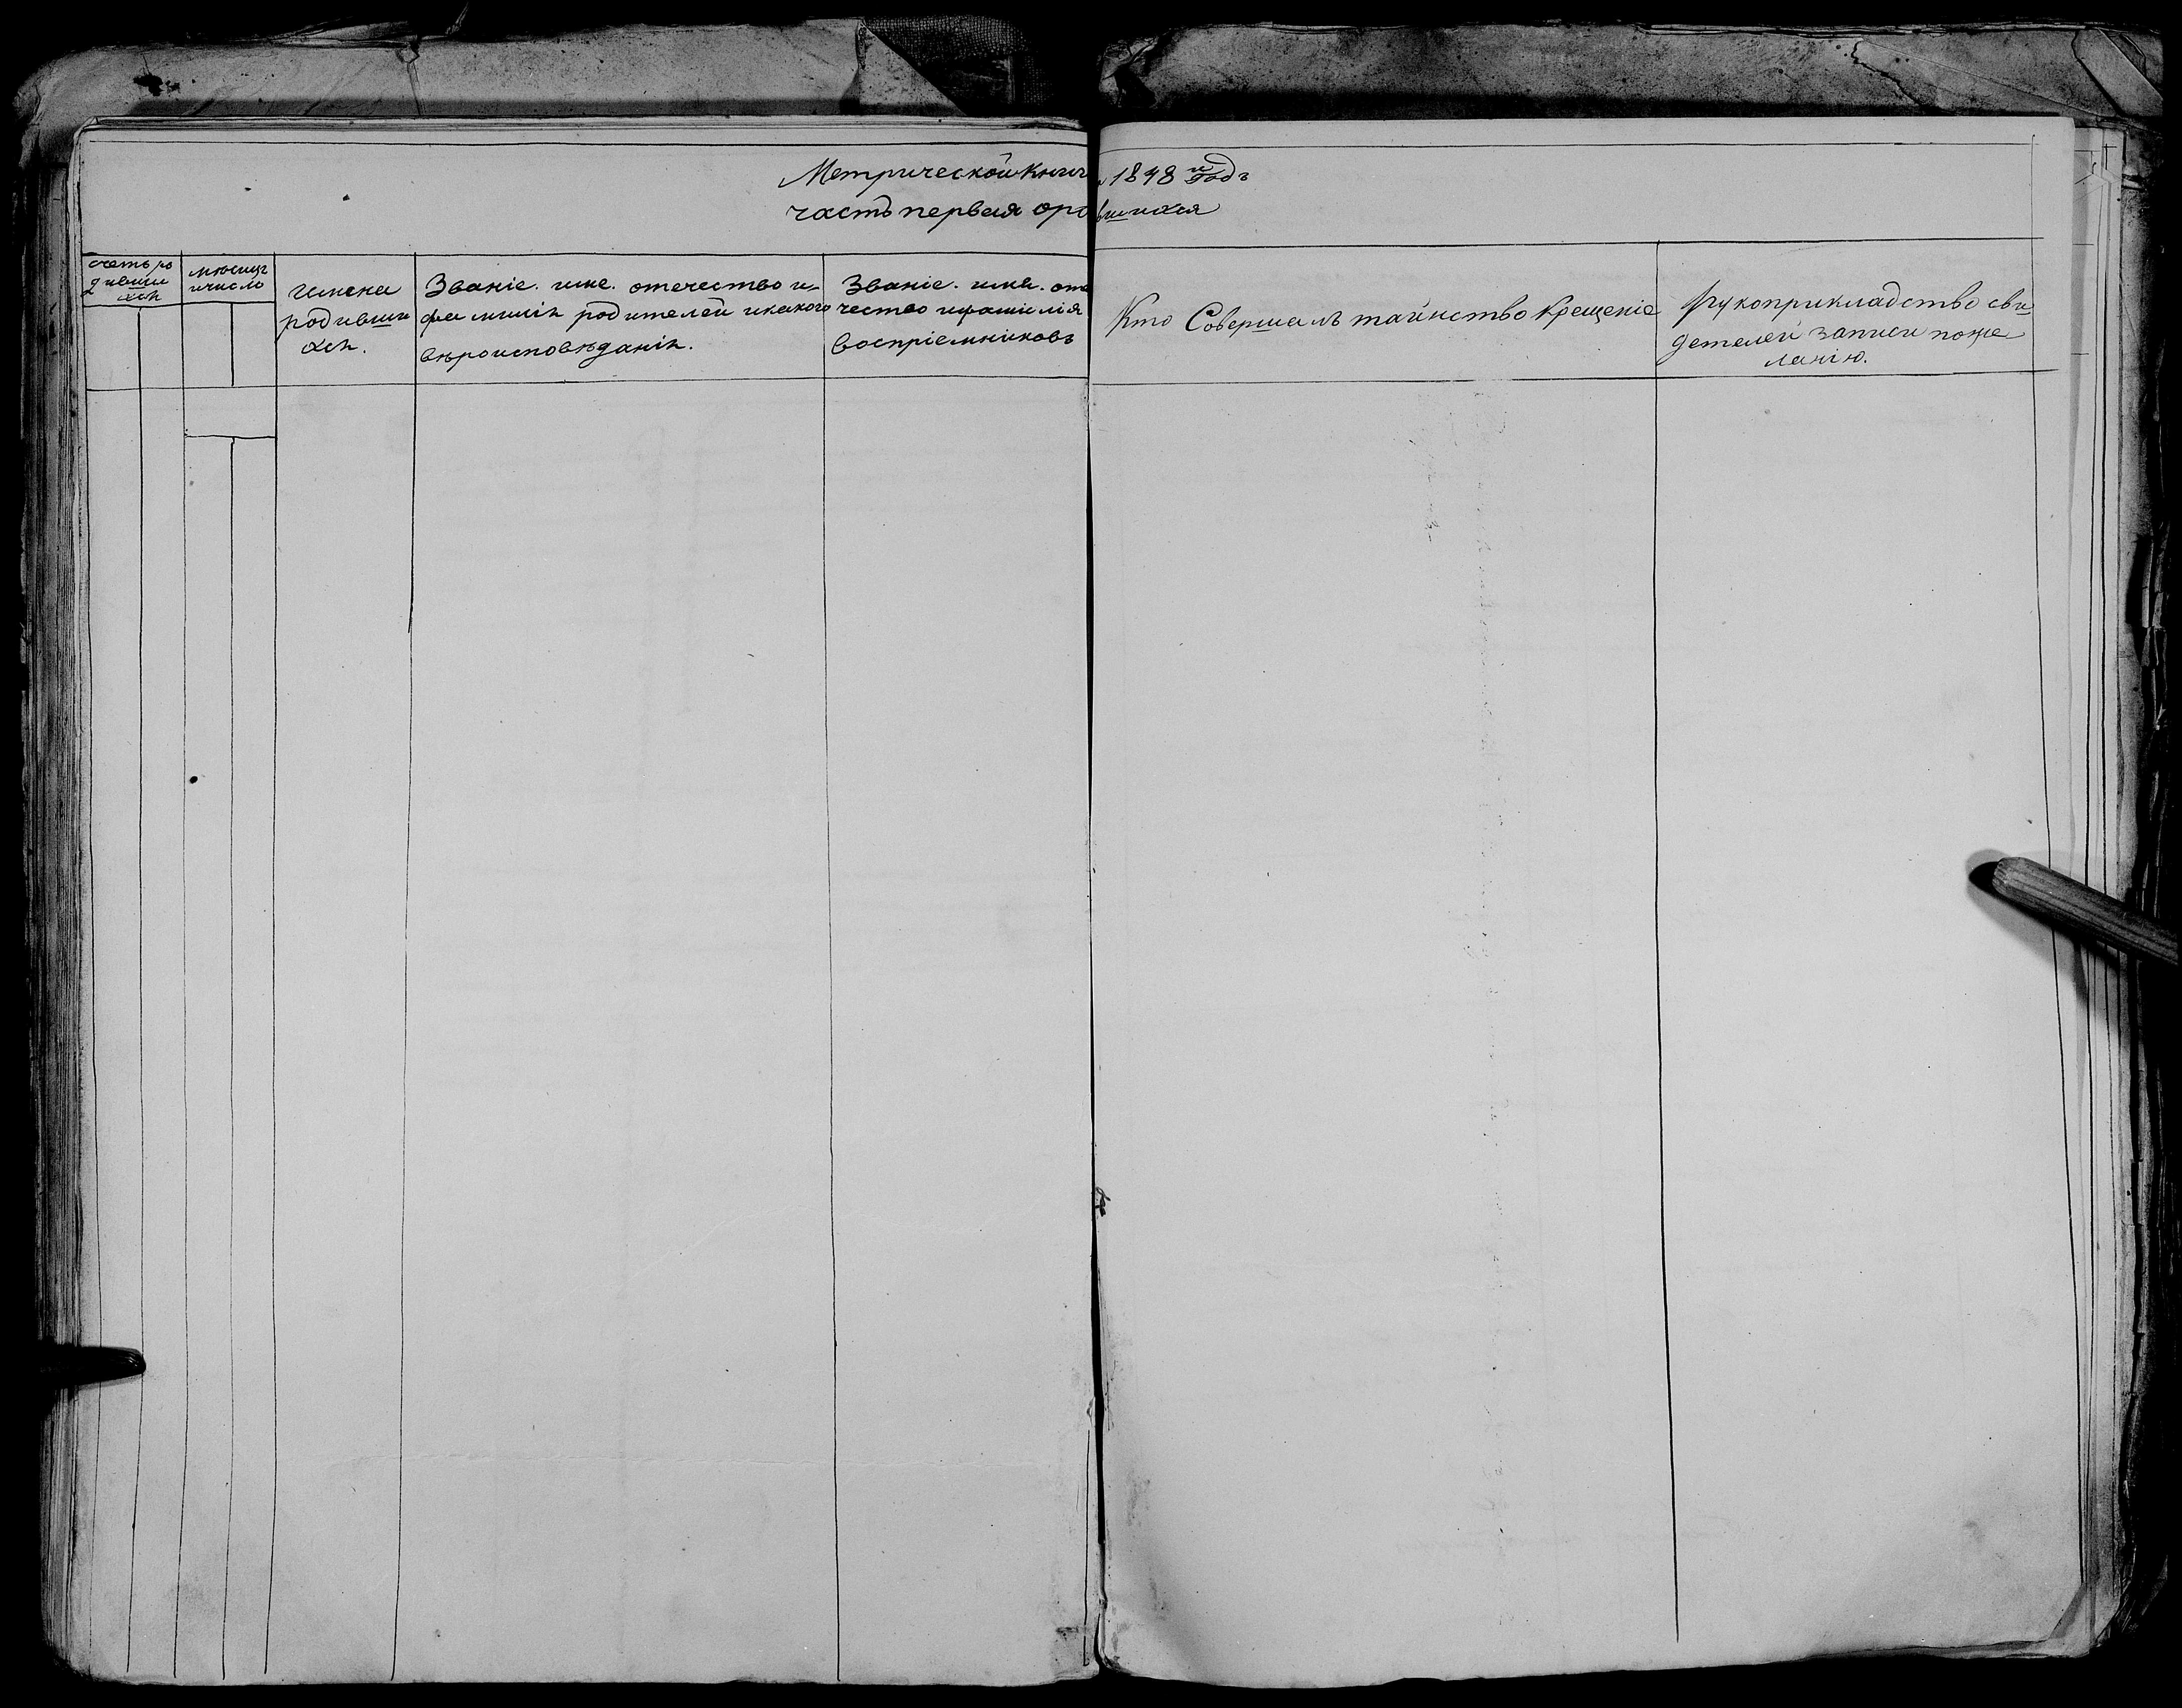 Метрической Книги 1848 й годъ
часть первая о ро вшихся
счетъ ро
дивши
хся
мѣсяцъ
и число
имена
родивши
хся.
Званіе. имя. отечество и
фамилія родителей и какого
вѣроисповѣданія.
Званіе. имя. оте
чество и фамилія
воспріемниковъ
Кто Совершалъ таинство Крещеніе
Рукоприкладство сви
детелей записи поже
ланію.